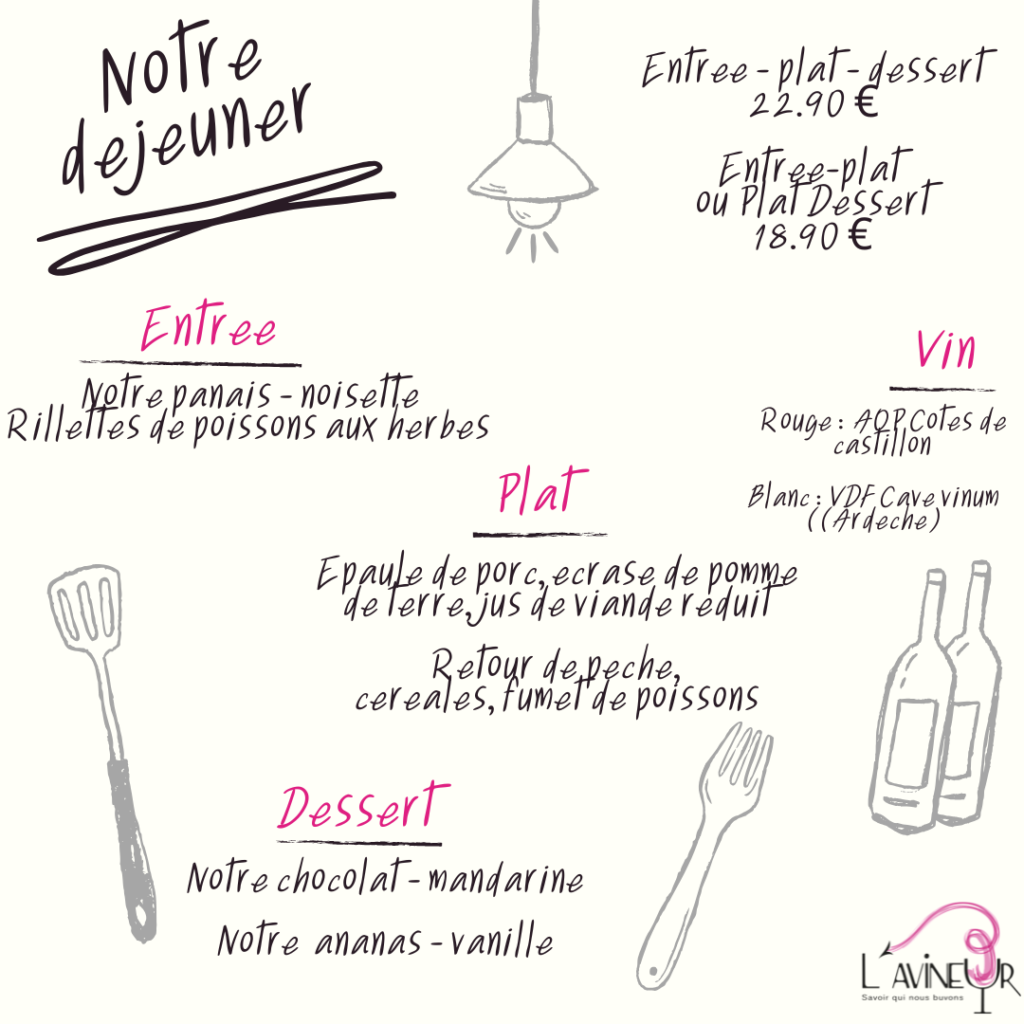 Notre
dejeuner
Entree - plat - dessert
22.90 €
Entree-plat
ou Plat Dessert
18.90 €
Entree
Notre panais - noisette
Rillettes de poissons aux herbes
Vin
Rouge : AOP Cotes de
castillon
Blanc : VDF Cave vinum
((Ardeche)
Plat
Epaule de porc, ecrase de pomme
de terre, jus de viande reduit
Retour de peche,
cereales, fumet de poissons
Dessert
Notre chocolat - mandarine
Notre ananas - vanille
L'AVINEUR
Savoir qui nous buvons